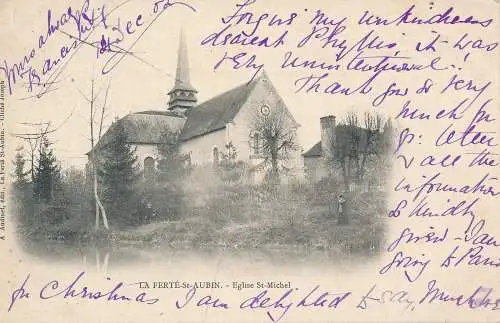 Yours always
Francis
14 Dec 02
Forgive my unkindness
dearest Phyllis, it was
very unintentional!!
Thank you so very
much for
yr: letter
& all the
information
so kindly
given - I am
going to Paris
for Christmas I am delighted to say, much
LA FERTÉ-St-AUBIN. - Eglise St-Michel
A Audinet, édit., La Ferté-St-Aubin. - Cliché Joseph